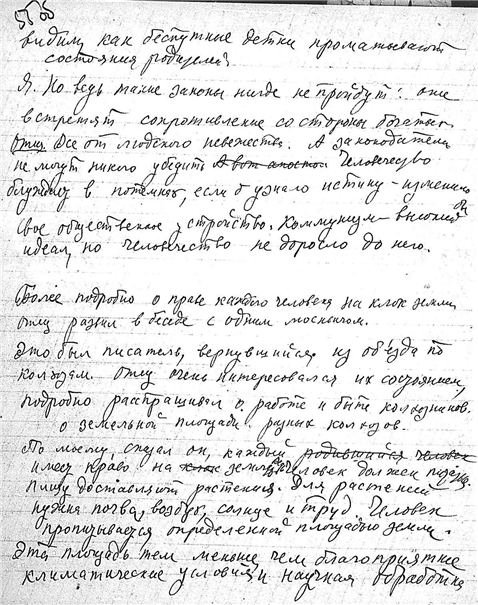 видим, как беспутные детки проматывают
состояния родителей.
Я. Но ведь такие законы нигде не пройдут: они
встретят сопротивление со стороны богатых
Отец Все от людского невежества. А законодатели
не могут никого убедить А вот Человечество
блуждает в потемках, если б узнало истину – изменило бы
свое общественное устройство. Коммунизм – высокий
идеал, но человечество не доросло до него.
Более подробно о праве каждого человека на клок земли
отец развил в беседе с одним москвичом.
Это был писатель, вернувшийся из объезда по
колхозам. Отец очень интересовался их состоянием,
подробно расспрашивал о работе и быте колхозников.
о земельной площади разных колхозов.
– По моему, сказал он, каждый родившийся человек
имеет право на клок земли. Человек должен
пищу доставляют растения. Для растений
нужна почва, воздух, солнце и труд. Человек
определенной площадью земли.
Эта площадь тем меньше, чем благоприятнее
климатические условия и научная обработка